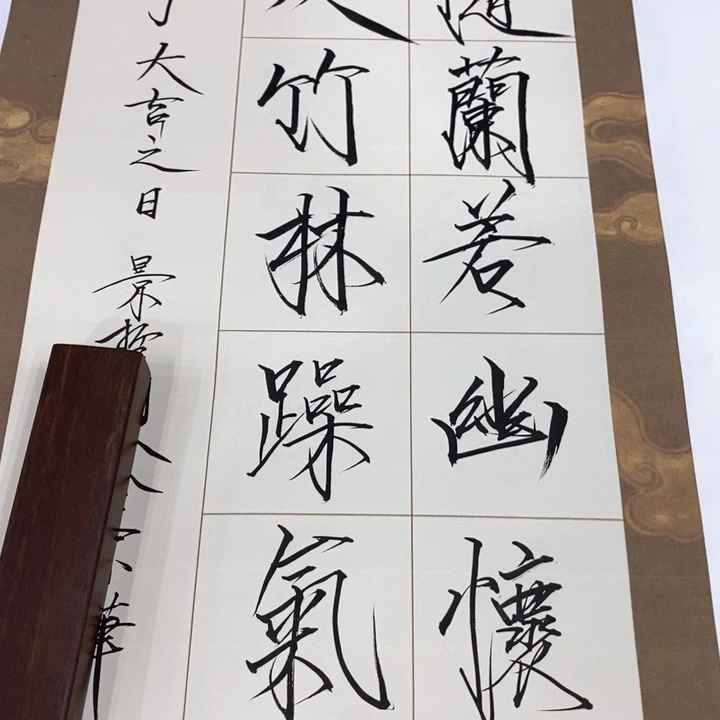 蘭若幽懷
竹林躁氣
大吉之日 景